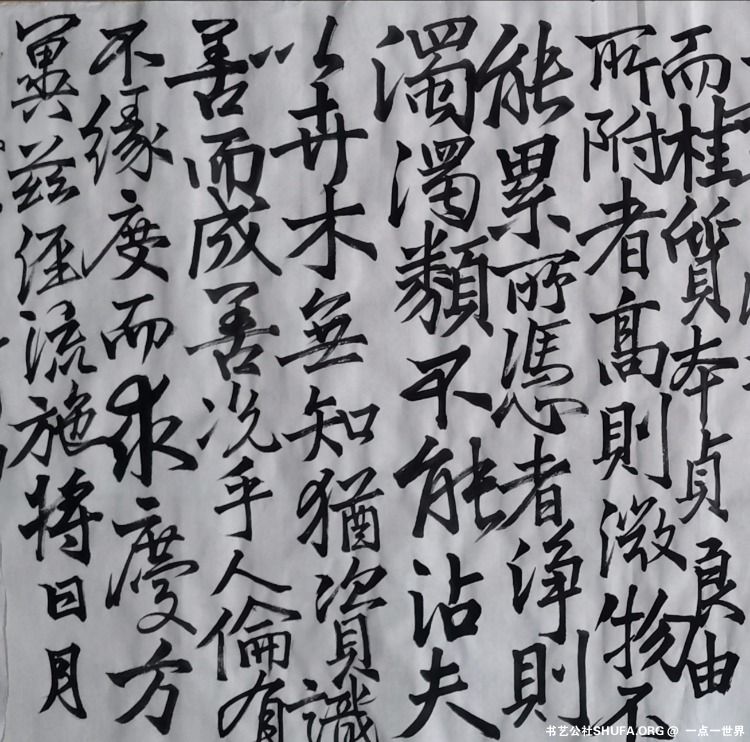 而桂質本貞良由
所附者高則微物不
能累所憑者淨則
濁濁類不能沾夫
以卉木無知猶資識
善而成善况乎人倫有
不緣度而求慶方
冀茲經流施將日月
书艺公社SHUFA.ORG @ 一点一世界